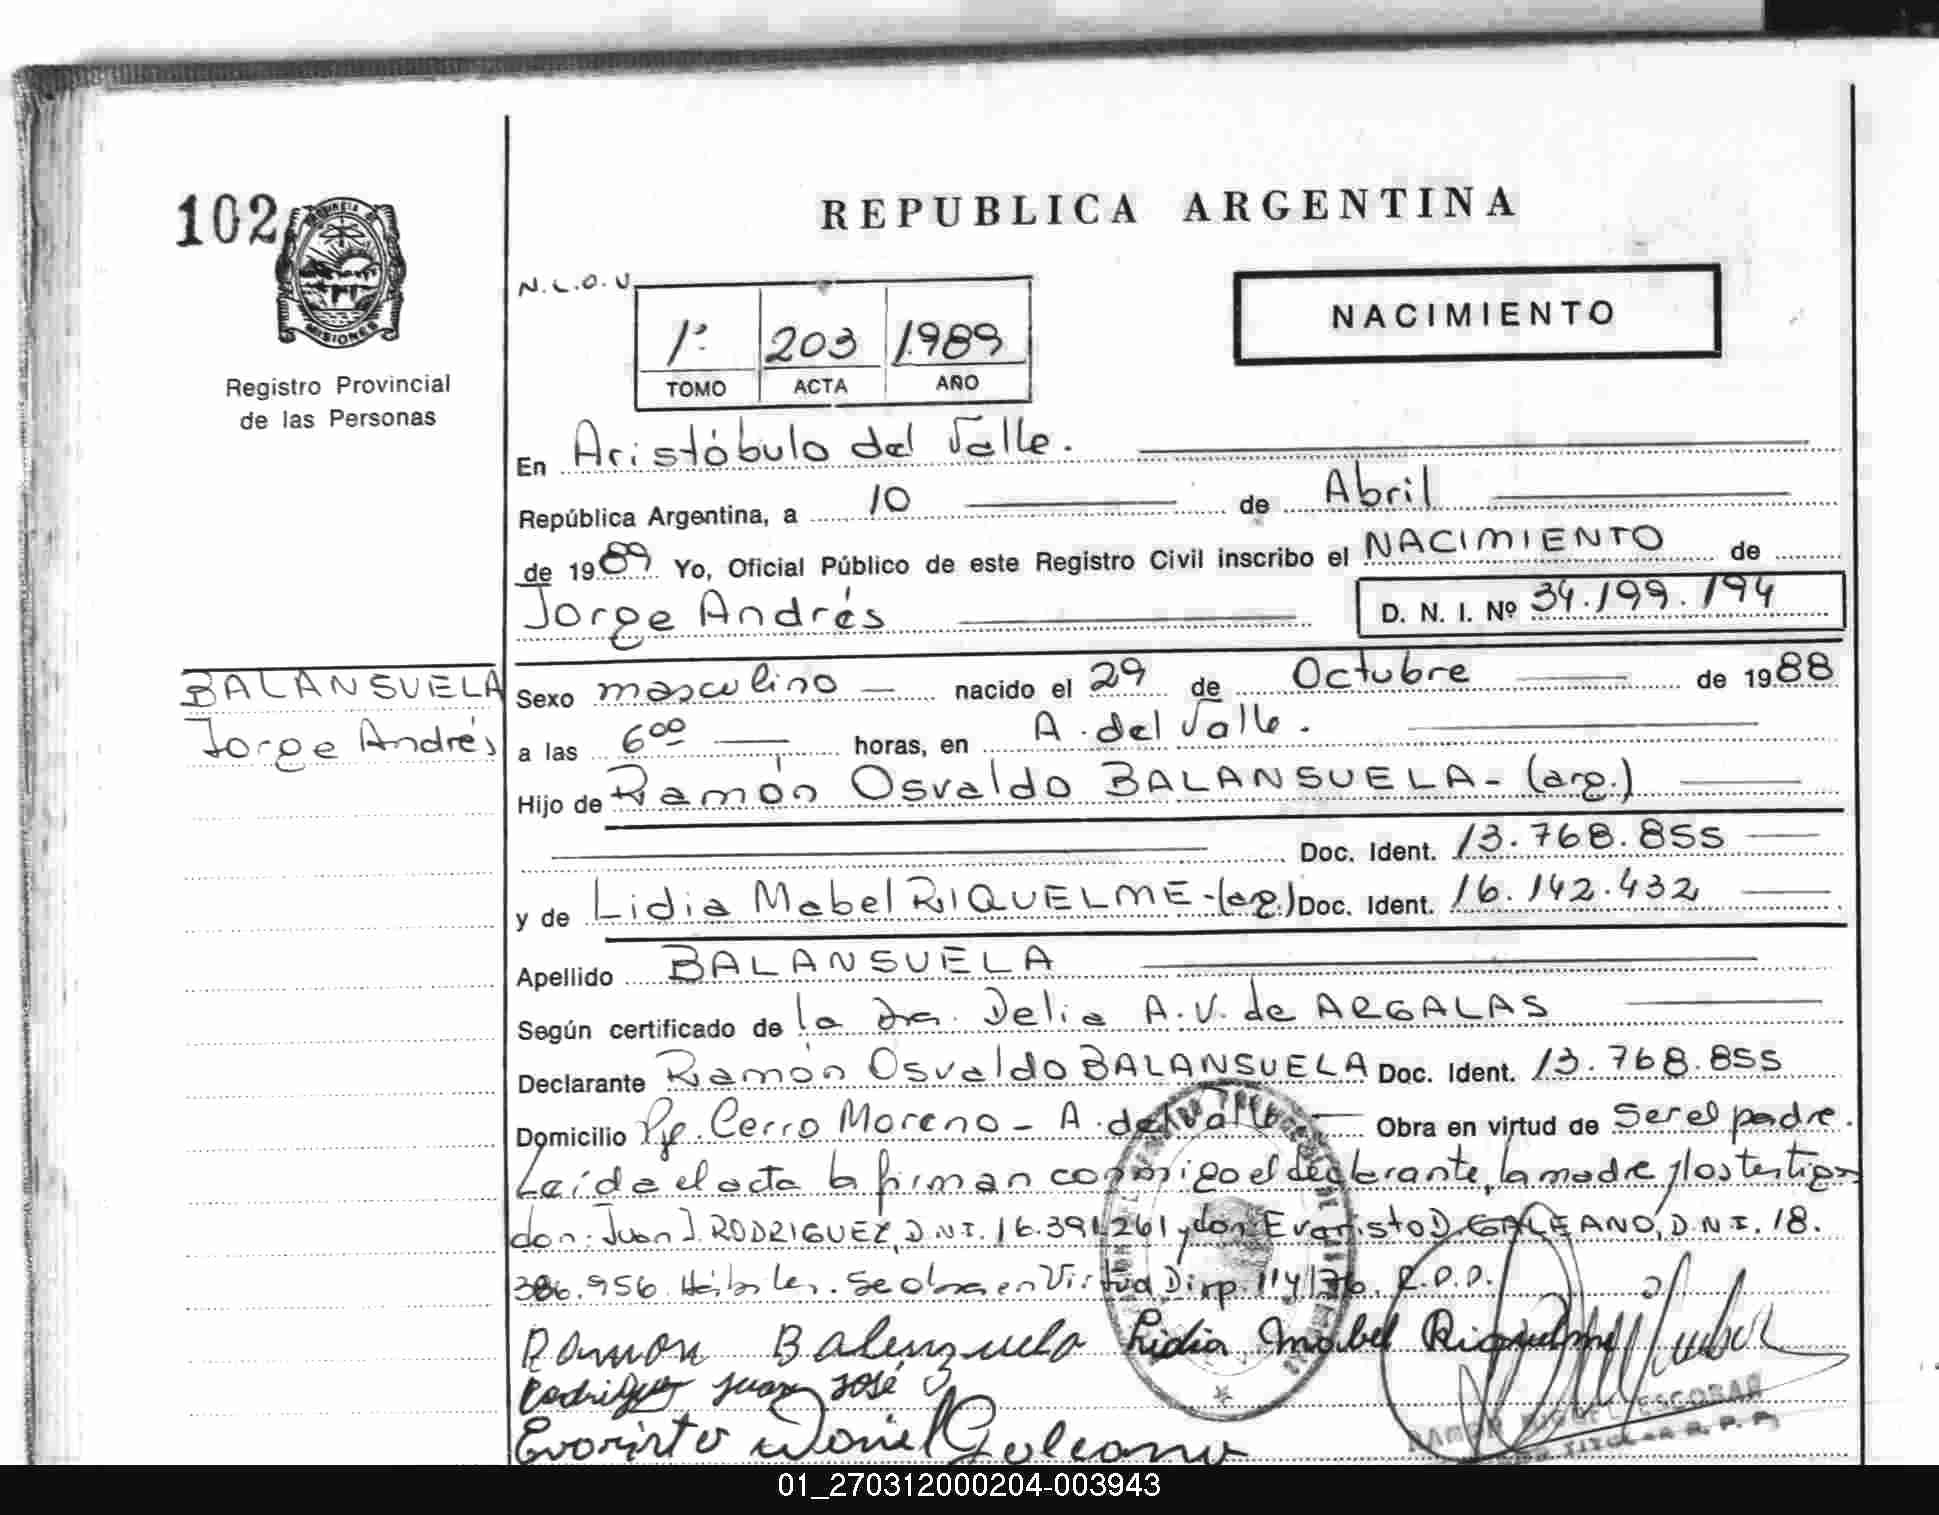 102
PROVINCIA DE
MISIONES
Registro Provincial
de las Personas
REPUBLICA ARGENTINA
N.L.O.V.
1º 203 1.989
TOMO ACTA AÑO
NACIMIENTO
En Aristóbulo del Valle.
República Argentina, a 10 de Abril
de 1989 Yo, Oficial Público de este Registro Civil inscribo el NACIMIENTO de
Jorge Andrés D. N. I. Nº 34.199.194
BALANSUELA
Jorge Andrés
Sexo masculino nacido el 29 de Octubre de 1988
a las 6 00 horas, en A. del Valle.
Hijo de Ramón Osvaldo BALANSUELA - (arg.)
Doc. Ident. 13.768.855
y de Lidia Mabel RIQUELME - (arg.) Doc. Ident. 16.142.432
Apellido BALANSUELA
Según certificado de la Dra. Delia A.V. de ARGALAS
Declarante Ramón Osvaldo BALANSUELA Doc. Ident. 13.768.855
Domicilio Pje. Cerro Moreno - A. del Valle Obra en virtud de Ser el padre.
Leída el acta la firman conmigo el declarante, la madre y los testigos
don: Juan J. RODRIGUEZ, D.N.I. 16.391.261 y don Evaristo D. GALEANO, D.N.I. 18.
386.956. Hábiles. Se obra en Virtud Disp. 114/76. R.P.P.
Ramon Balenzuela Lidia Mabel Riquelme
Rodriguez Juan José
Evaristo Daniel Galeano
RAMON MIGUEL ESCOBAR
TITULAR R. P. P.
01_270312000204-003943